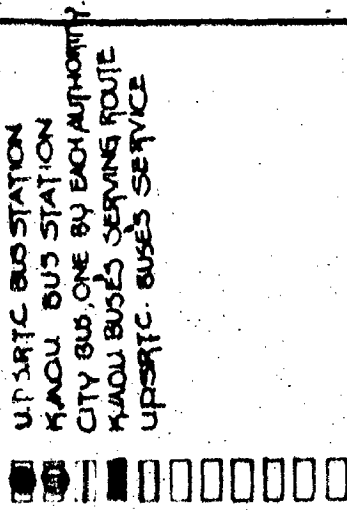 U.P.S.R.T.C. BUS STATION
K.M.O.U BUS STATION
CITY BUS, ONE BY EACH AUTHORITY.
K.M.O.U BUSES SERVING ROUTE
U.P.S.R.T.C. BUSES SERVICE